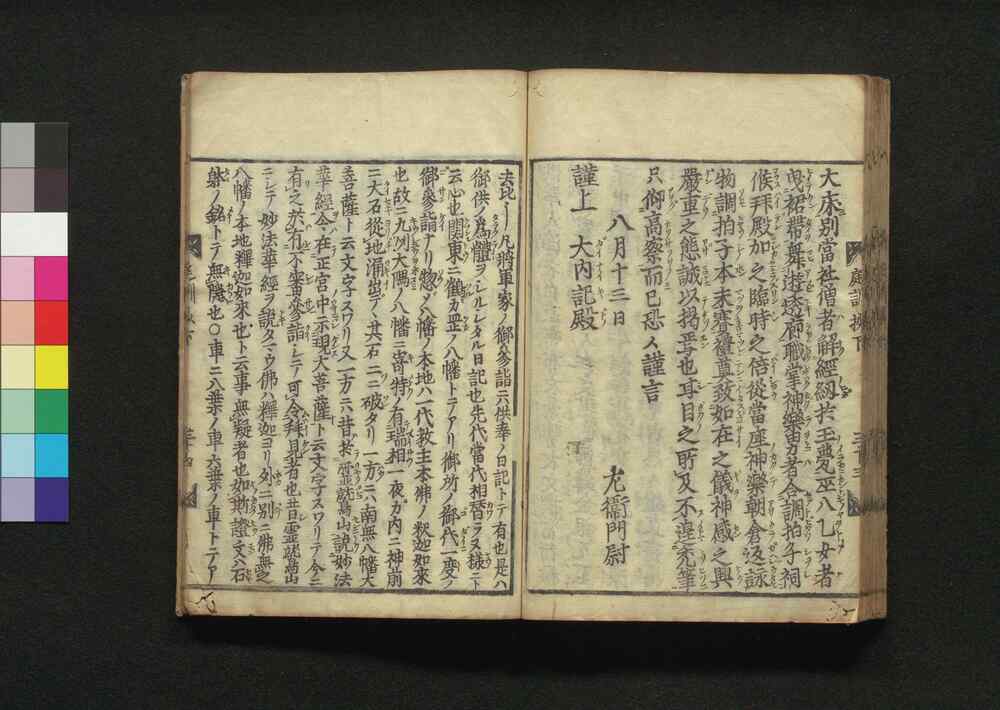 大床別當社僧者解經紐於玉甍巫八乙女者
曳裙帶舞遊透廊職掌神樂男者合調拍子祠
候拜殿加之臨時之倍從當座神樂朝倉返詠
物調拍子本末賽禮奠致如在之儀神感之興
嚴重之態誠以揭焉也耳目之所及不遑禿筆
只仰高察而已恐々謹言
八月十三日
左衞門尉
謹上 大内記殿
庭訓抄下
三十三
去比〽凡將軍家ノ御參詣ニ供奉ノ日記トテ有也是ハ
御供ノ爲體ヲシルシタル日記也先代當代相替ラヌ樣ニト
云心也関東ニ鶴カ岡ノ八幡トテアリ御所ノ御代一度ノ
御參詣ナリ惣メ八幡ノ本地ハ一代教主本佛ノ釈迦如來
也故ニ九州大隅ノ八幡ニ寄特ノ有瑞相一夜ガ内ニ神前
ニ大石從地涌出ヅ其石二ニ破タリ一方ニハ南無八幡大
菩薩ト云文字スワリ又一方ニハ昔於靈鷲山説妙法
華經今在正宮中示現大菩薩ト云文字スワリテ今ニ
有之於有不審參詣シテ可令拜見者也昔靈鷲山
ニシテ妙法華經ヲ説タマウ佛ハ釋迦ヨリ外ニ別ニ佛無之
八幡ノ本地釋迦如來也ト云事無疑者也如斯證文ハ石
躰ノ銘トテ無隱也○車ニ八葉ノ車六葉ノ車トテア
庭訓抄下
三十四